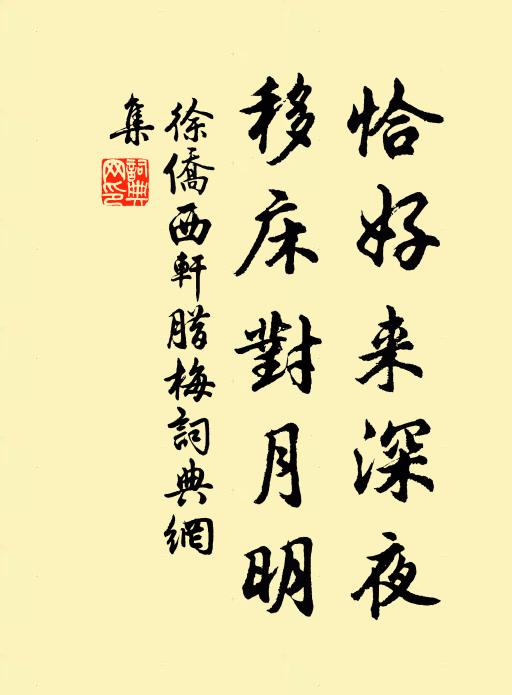 恰好来深夜
移床對月明
徐僑西軒腊梅詞典網
集
詞典
网印